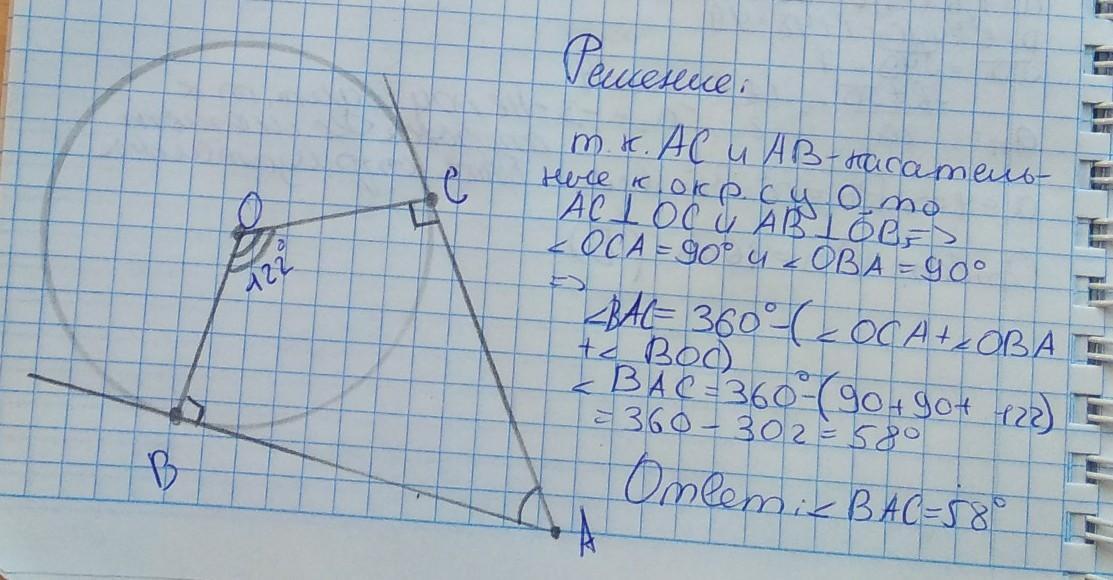 Решение:
т.к. AC и AB-касатель-
ные к окр. с ц O, то
AC⊥OC и AB⊥OB=>
∠OCA=90° и ∠OBA=90°
=>
∠BAC=360°-(∠OCA+∠OBA
+∠BOC)
∠BAC=360°-(90+90+122)
=360-302=58°
Ответ:∠BAC=58°
O
C
122°
B
A